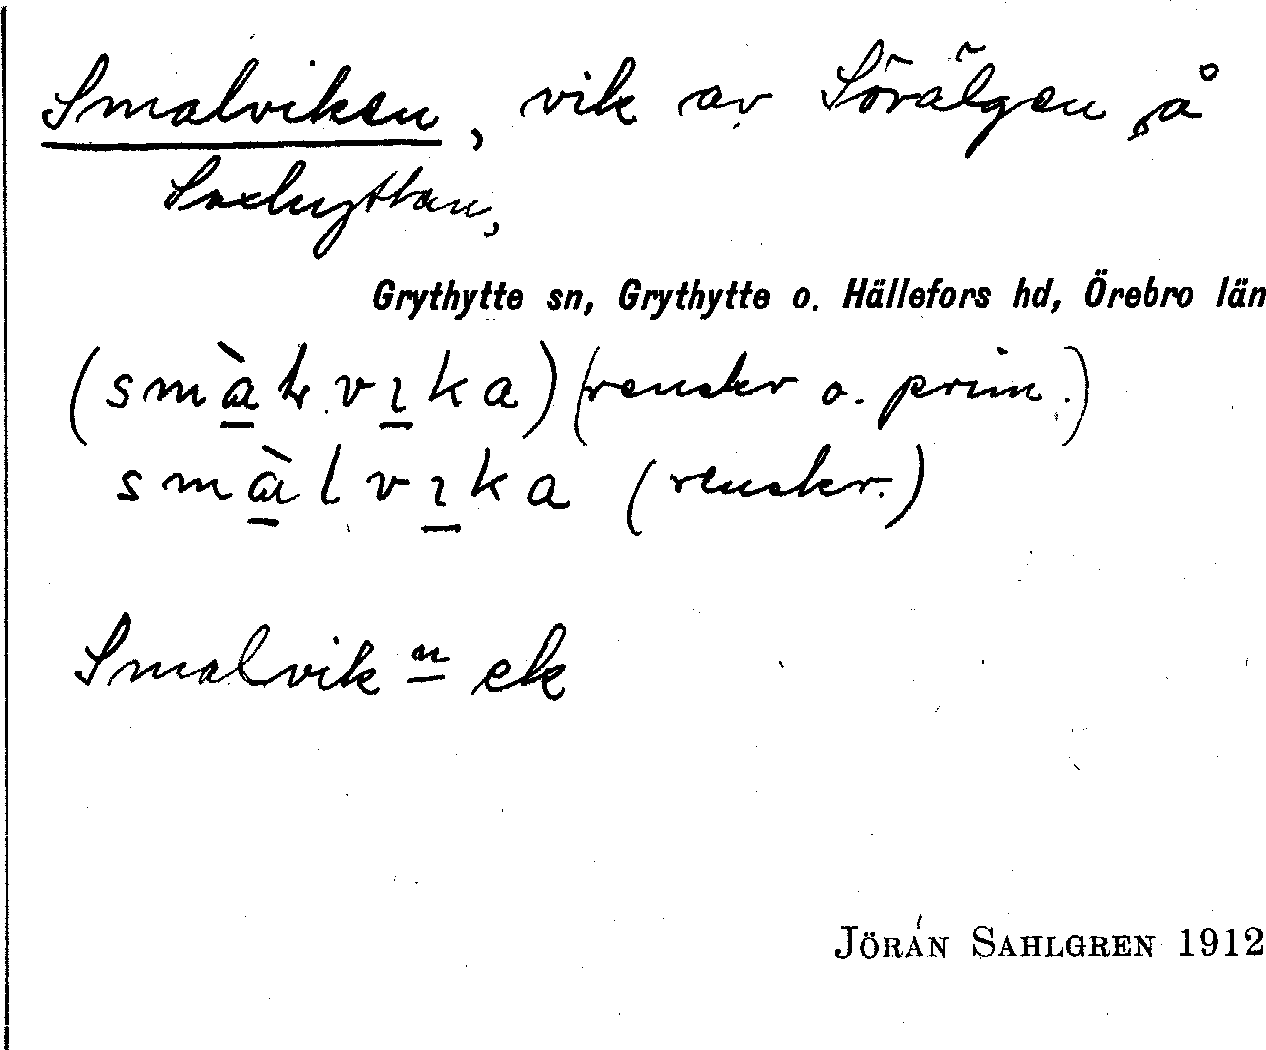 Smalviken, vik av Sörälgen å
Saxhyttan,
Grythytte sn, Grythytte o. Hällefors hd, Örebro län
(smàɫvıka) (renskr o. prim.)
smàlvıka (renskr.)
Smalvik n ek
JÖRAN SAHLGREN 1912